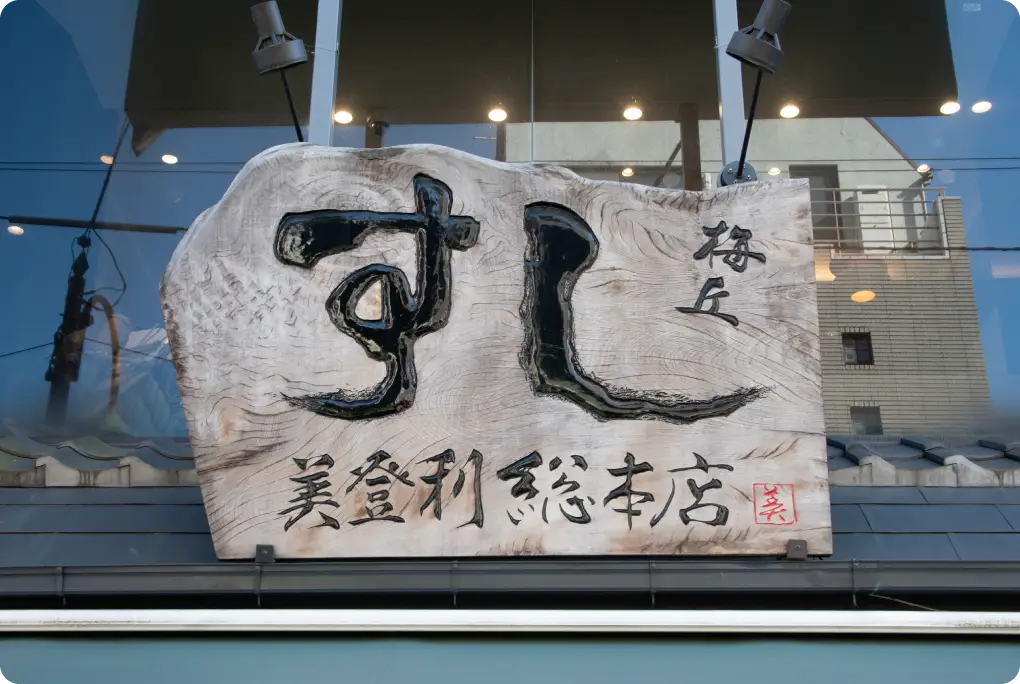 すし
梅丘
美登利総本店
美